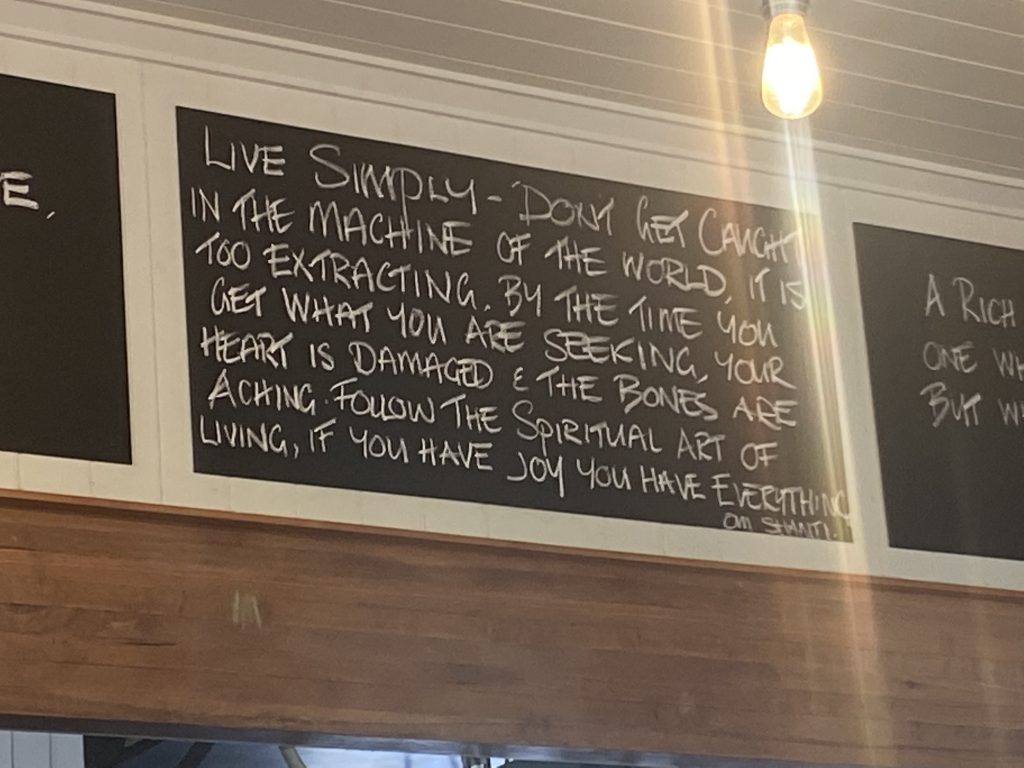 E.
LIVE SIMPLY - DON'T GET CAUGHT
IN THE MACHINE OF THE WORLD, IT IS
TOO EXTRACTING. BY THE TIME YOU
GET WHAT YOU ARE SEEKING, YOUR
HEART IS DAMAGED & THE BONES ARE
ACHING. FOLLOW THE SPIRITUAL ART OF
LIVING, IF YOU HAVE JOY YOU HAVE EVERYTHING
OM SHANTI.
A RICH
ONE WH
BUT WE